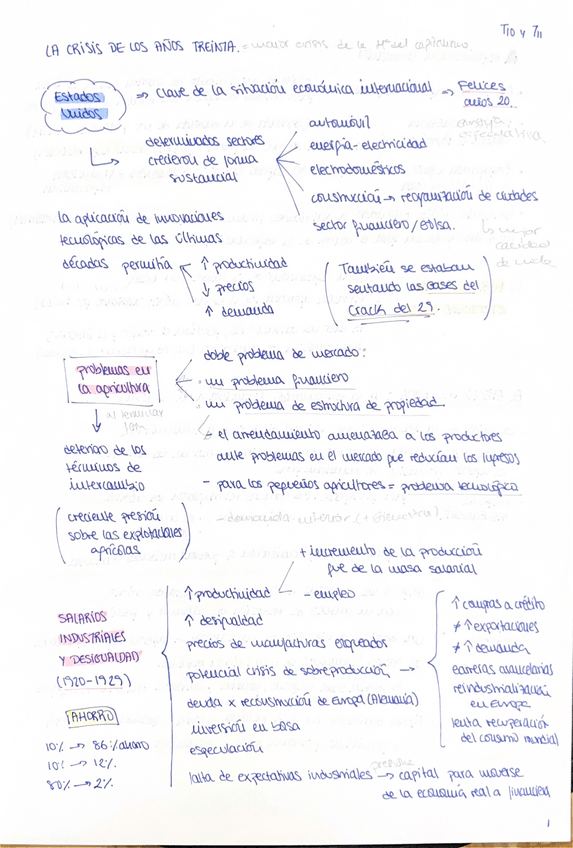 T10 y T11
LA CRISIS DE LOS AÑOS TREINTA. = mayor crisis de la Hª del capitalismo.
Estados Unidos
=> clave de la situación económica internacional => Felices años 20.
determinados sectores crecieron de forma sustancial
automóvil
energía - electricidad
electrodomésticos
construcción -> reorganización de ciudades
sector financiero / bolsa.
↳ mejor calidad de vida
la aplicación de innovaciones
tecnológicas de las últimas
décadas permitía
↑ productividad
↓ precios
↑ demanda
(También se estaban
sentando las bases del
Crack del 29.)
problemas en
la agricultura
doble problema de mercado:
· un problema financiero
· un problema de estructura de propiedad.
- el arrendamiento amenazaba a los productores
ante problemas en el mercado que reducían los ingresos
- para los pequeños agricultores = problema tecnológico
al terminar
deterioro de los
términos de
intercambio
(creciente presión
sobre las explotaciones
agrícolas)
SALARIOS
INDUSTRIALES
Y DESIGUALDAD
(1920-1929)
↑ productividad
+ incremento de la producción
que de la masa salarial
- empleo
↑ desigualdad
precios de manufacturas
potencial crisis de sobreproducción ->
deuda x reconstrucción de Europa (Alemania)
inversión en bolsa
especulación
falta de expectativas industriales -> capital para moverse
de la economía real a financiera
↑ compras a crédito
≠ ↑ exportaciones
≠ ↑ demanda
barreras arancelarias
reindustrialización
en Europa
lenta recuperación
del consumo mundial
AHORRO
10% -> 86% ahorro
10% -> 12%
80% -> 2%
1